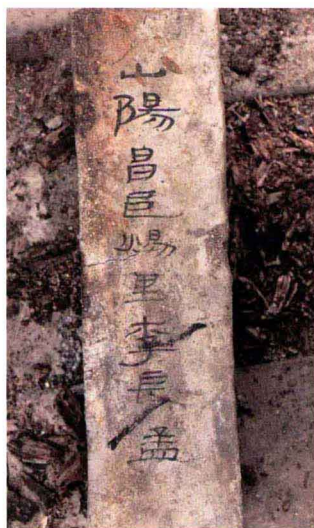 山陽昌邑煬里李長孟